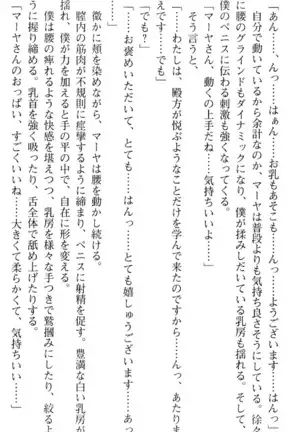 「あん……、んっ……お乳もあそこも……んっ……ようございます……はんっ」
自分で動いているから余計なのか、マーヤは普段よりも気持ち良さそうにしている。徐々
に腰のグラインドもダイナミックになり、僕が揉みしだいている乳房も揺れる。そして、
僕のペニスに伝わる刺激も強くなってくる。
「マーヤさん、動くの上手だね……気持ちいいよ」
そう言うと、
「……わたしは、殿方が悦ぶようなことだけを学んで来たのですから……んっ、あたりま
えです……でも」
「でも？」
「……お褒めいただいて、とても……はんっ……とても嬉しゅうございます……あっ
微かに頬を染めながら、マーヤは腰を動かし続ける。
膣内の筋肉が不規則に痙攣するように締まり、ペニスに射精を促す。豊満な白い乳房が
揺れ、僕が力を加えると手の平の中で、自在に形を変える。
僕は腰の痺れるような快感を堪えつつ、乳房を様々な手つきで鷲掴みにしたり、絞るよ
うに握り締める。乳首を強く吸ったり、舌全体で舐め上げたりする。
「マーヤさんのおっぱい、すごくいいね……大きくて柔らかくて、気持ちいい……」